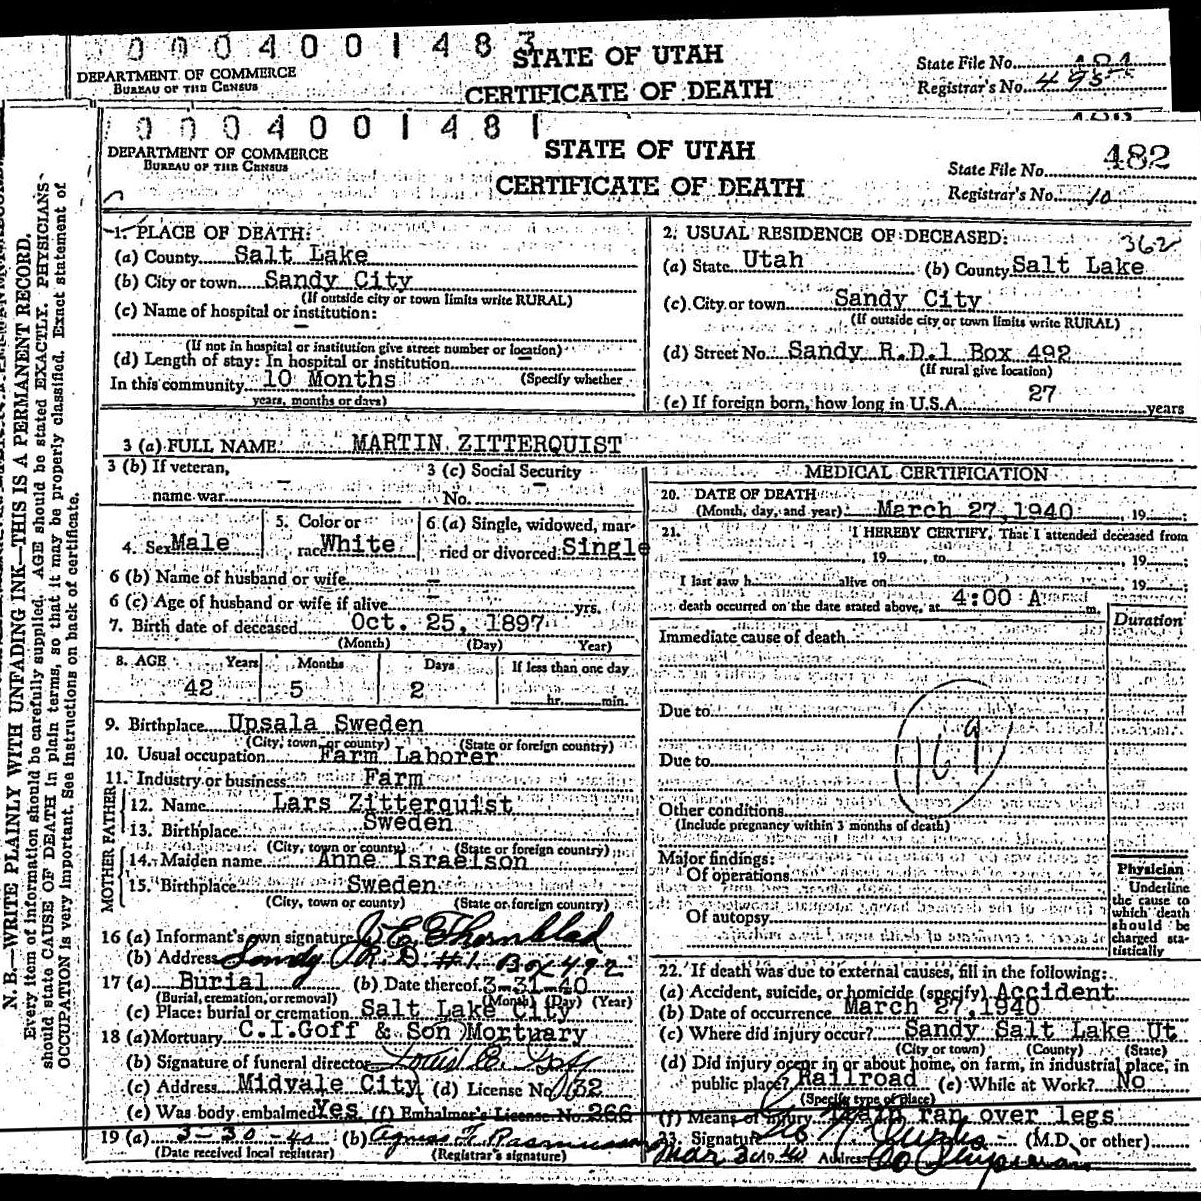 0 0 0 4 0 0 1 4 8 3
STATE OF UTAH
DEPARTMENT OF COMMERCE
BUREAU OF THE CENSUS
CERTIFICATE OF DEATH
State File No.
Registrar's No. 495
0 0 0 4 0 0 1 4 8 1
DEPARTMENT OF COMMERCE
BUREAU OF THE CENSUS
STATE OF UTAH
CERTIFICATE OF DEATH
State File No. 482
Registrar's No. 10
N. B.—WRITE PLAINLY WITH UNFADING INK—THIS IS A PERMANENT RECORD.
Every item of information should be carefully supplied. AGE should be stated EXACTLY. PHYSICIANS
should state CAUSE OF DEATH in plain terms, so that it may be properly classified. Exact statement of
OCCUPATION is very important. See instructions on back of certificate.
1. PLACE OF DEATH:
(a) County Salt Lake
(b) City or town Sandy City
(If outside city or town limits write RURAL)
(c) Name of hospital or institution:
(If not in hospital or institution give street number or location)
(d) Length of stay: In hospital or institution
In this community 10 Months (Specify whether
years, months or days)
2. USUAL RESIDENCE OF DECEASED: 362
(a) State Utah (b) County Salt Lake
(c) City or town Sandy City
(If outside city or town limits write RURAL)
(d) Street No. Sandy R.D.1 Box 492
(If rural give location)
(e) If foreign born, how long in U.S.A. 27 years
3 (a) FULL NAME MARTIN ZITTERQUIST
3 (b) If veteran,
name war
3 (c) Social Security
No.
4. Sex Male
5. Color or
race White
6 (a) Single, widowed, mar-
ried or divorced Single
6 (b) Name of husband or wife
6 (c) Age of husband or wife if alive yrs.
7. Birth date of deceased Oct. 25, 1897
(Month) (Day) Year)
8. AGE Years Months Days If less than one day
42 5 2 hr. min.
9. Birthplace Upsala Sweden
(City, town, or county) (State or foreign country)
10. Usual occupation Farm Laborer
11. Industry or business Farm
FATHER
12. Name Lars Zitterquist
13. Birthplace Sweden
(City, town or county) (State or foreign country)
MOTHER
14. Maiden name Anne Israelson
15. Birthplace Sweden
(City, town or county) (State or foreign country)
16 (a) Informant's own signature J E Thornblad
(b) Address Sandy R. D. #1. Box 492
17 (a) Burial (b) Date thereof 3-31-40
(Burial, cremation, or removal) (Month) (Day) (Year)
(c) Place: burial or cremation Salt Lake City
18 (a) Mortuary C.I.Goff & Son Mortuary
(b) Signature of funeral director
(c) Address Midvale City (d) License No. 132
(e) Was body embalmed Yes (f) Embalmer's License No. 266
19 (a) 3-30-40 (b) Agnes F. Rasmussen
(Date received local registrar) (Registrar's signature)
MEDICAL CERTIFICATION
20. DATE OF DEATH
(Month, day, and year) March 27,1940 , 19 :
21. I HEREBY CERTIFY, That I attended deceased from
, 19 , to , 19 :
I last saw h alive on , 19 :
death occurred on the date stated above, at 4:00 A m.
Duration
Immediate cause of death
Due to
169
Due to
Other conditions
(Include pregnancy within 3 months of death)
Major findings:
Of operations
Of autopsy
Physician
Underline
the cause to
which death
should be
charged sta-
tistically
22. If death was due to external causes, fill in the following:
(a) Accident, suicide, or homicide (specify) Accident
(b) Date of occurrence March 27,1940
(c) Where did injury occur? Sandy Salt Lake Ut
(City or town) (County) (State)
(d) Did injury occur in or about home, on farm, in industrial place, in
public place? Railroad (e) While at Work? No
(Specify type of place)
(f) Means of injury Train ran over legs
23. Signature (M.D. or other)
Mar 30 19 40 Address Co Physician